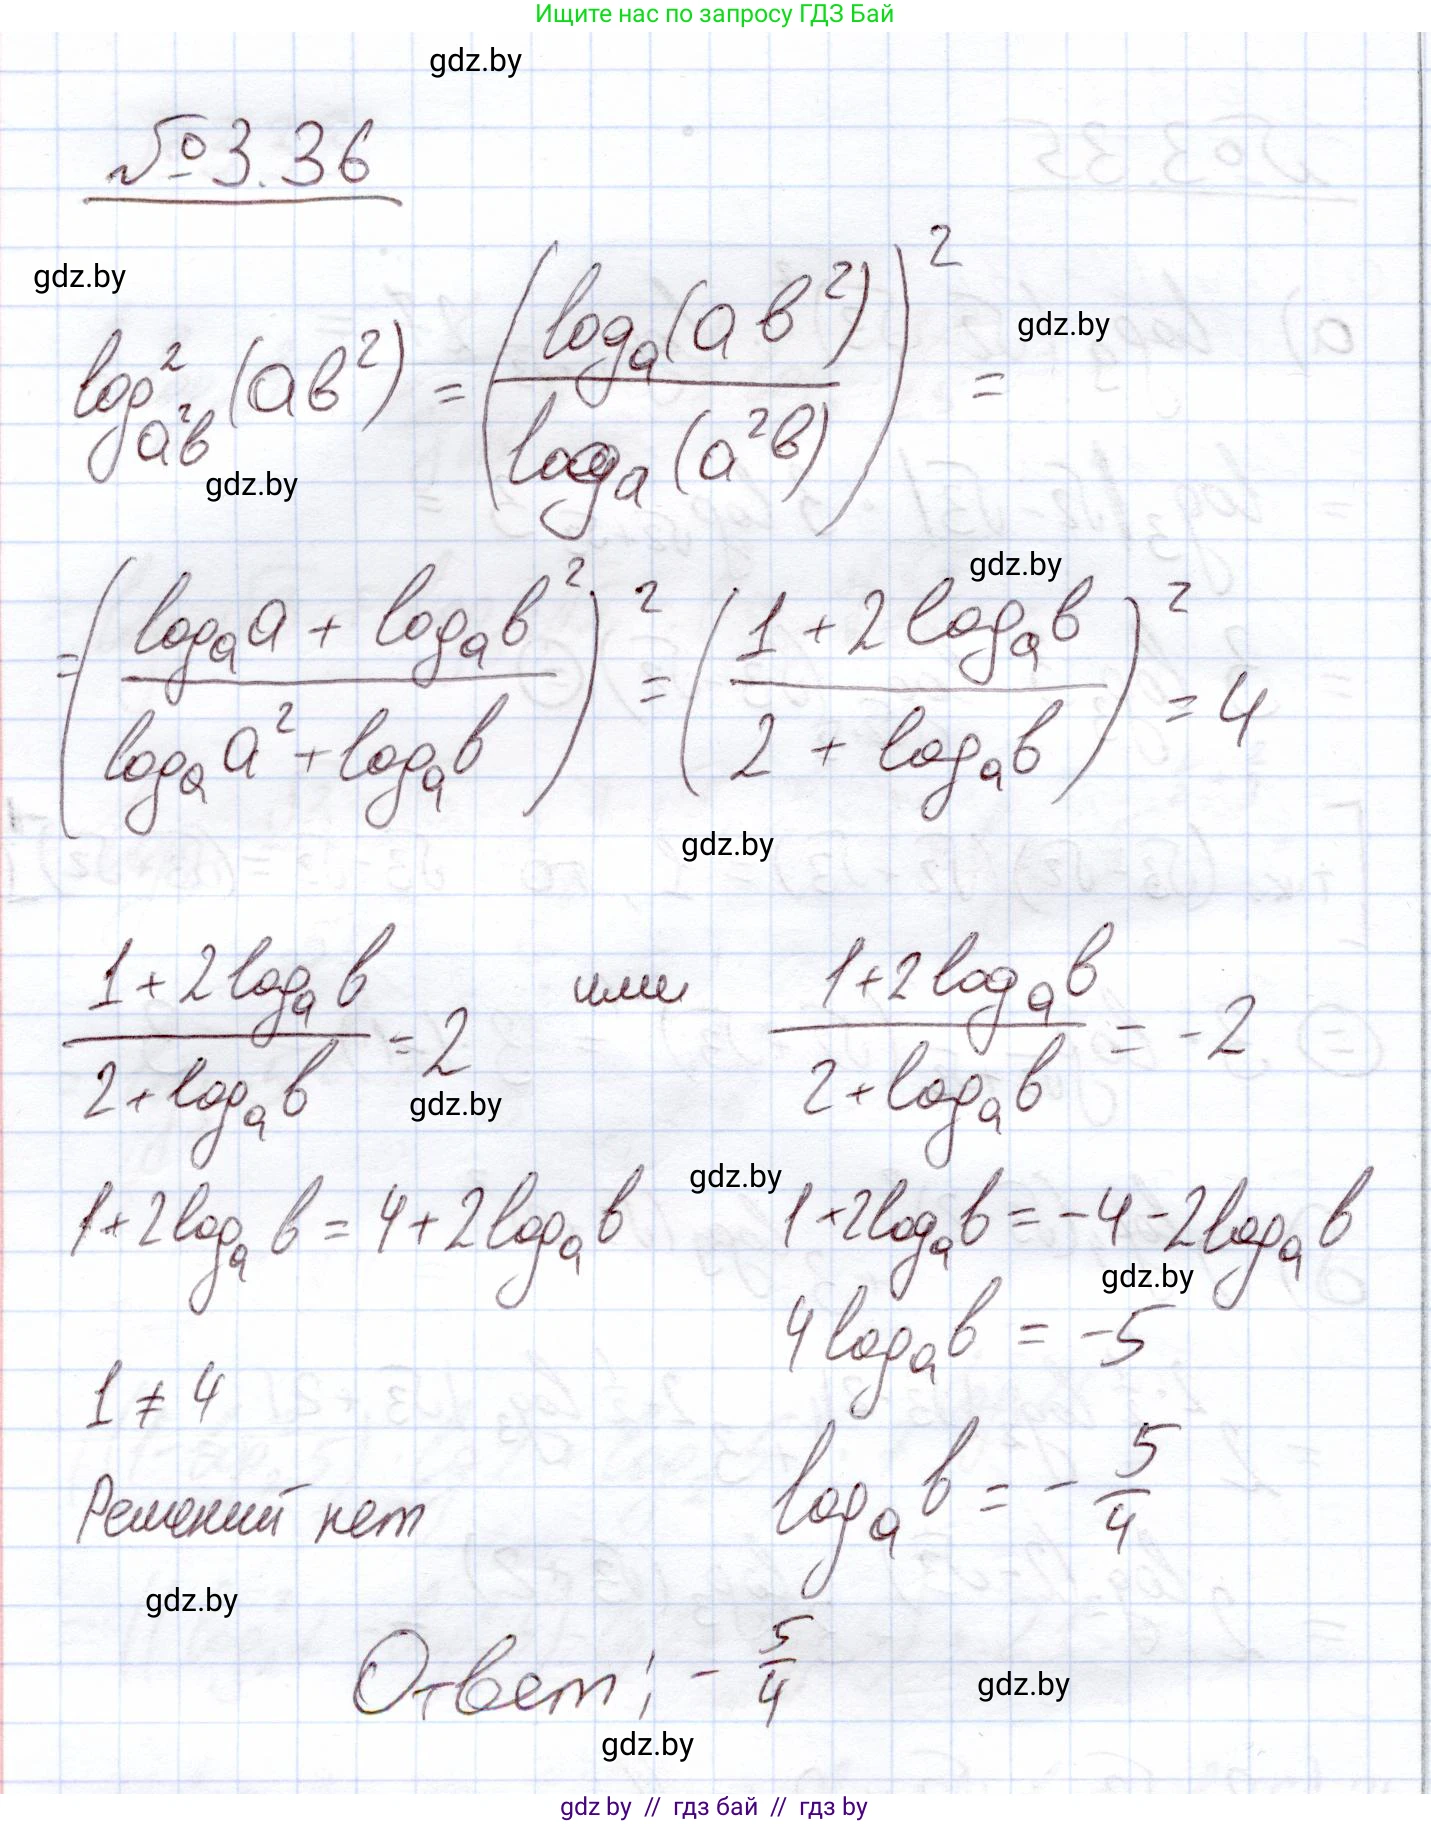 Ищите нас по запросу ГДЗ Бай
gdz.by
№ 3.36
gdz.by
log²_{a²b}(ab²) = (log_a(ab²) / log_a(a²b))² =
gdz.by
gdz.by
gdz.by
= ((log_a a + log_a b²) / (log_a a² + log_a b))² = ((1 + 2log_a b) / (2 + log_a b))² = 4
gdz.by
(1 + 2log_a b) / (2 + log_a b) = 2 или (1 + 2log_a b) / (2 + log_a b) = -2
gdz.by
gdz.by
1 + 2log_a b = 4 + 2log_a b 1 + 2log_a b = -4 - 2log_a b
gdz.by
4log_a b = -5
1 ≠ 4
log_a b = -5/4
Решений нет
gdz.by
Ответ: -5/4
gdz.by
gdz.by
gdz by // гдз бай // гдз by